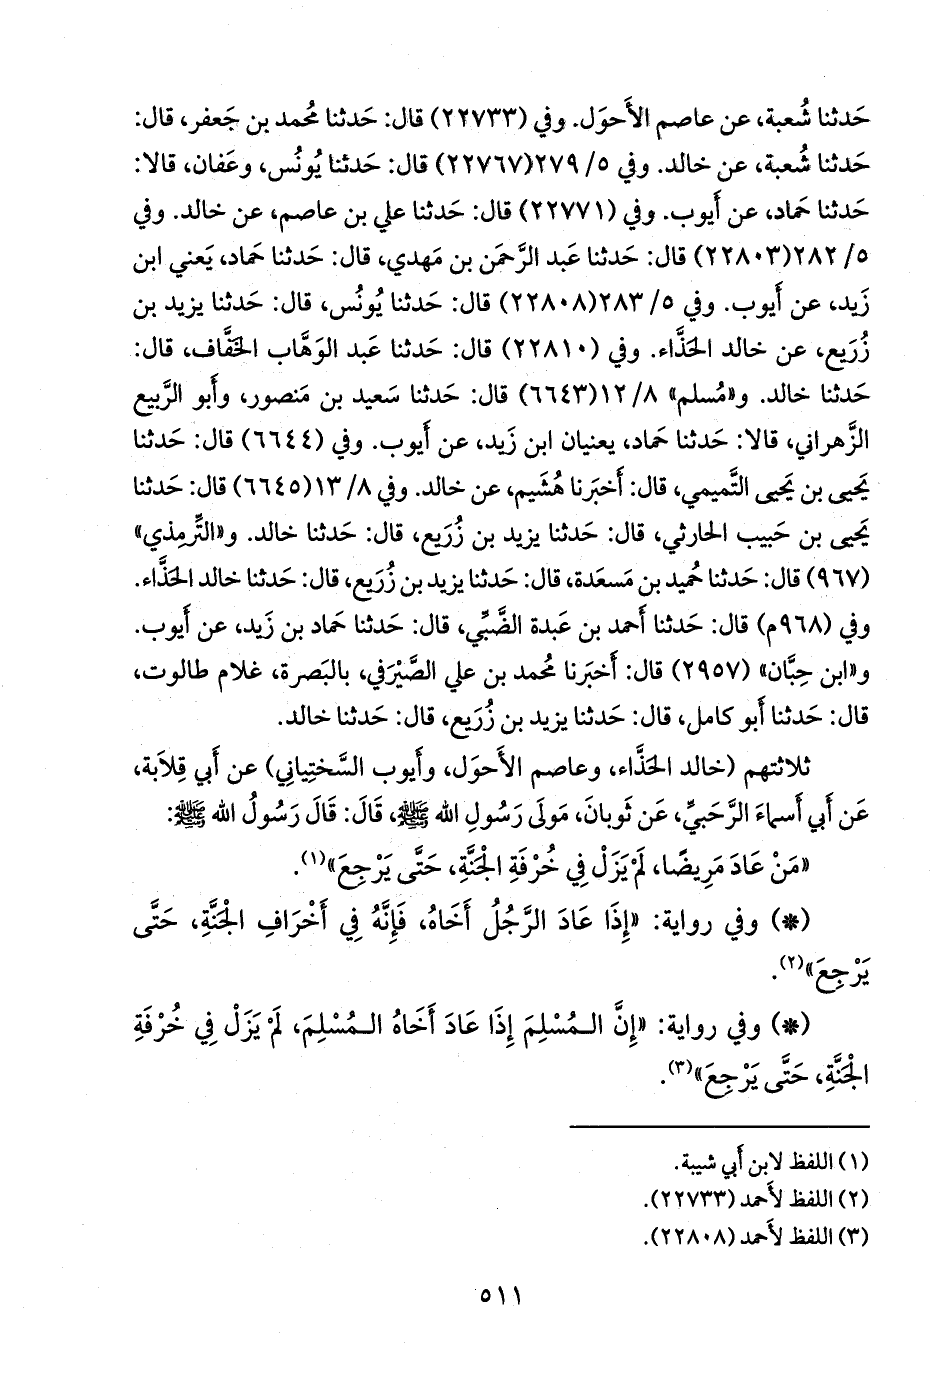 حَدثنا شُعبة، عن عاصم الأَحوَل. وفي (٢٢٧٣٣) قال: حَدثنا مُحمد بن جَعفر، قال:
حَدثنا شُعبة، عن خالد. وفي ٥/ ٢٧٩(٢٢٧٦٧) قال: حَدثنا يُونُس، وعَفان، قالا:
حَدثنا حَماد، عن أَيوب. وفي (٢٢٧٧١) قال: حَدثنا علي بن عاصم، عن خالد. وفي
٥/ ٢٨٢(٢٢٨٠٣) قال: حَدثنا عَبد الرَّحمَن بن مَهدي، قال: حَدثنا حَماد، يَعني ابن
زَيد، عن أَيوب. وفي ٥/ ٢٨٣(٢٢٨٠٨) قال: حَدثنا يُونُس، قال: حَدثنا يزيد بن
زُرَيع، عن خالد الحَذَّاء. وفي (٢٢٨١٠) قال: حَدثنا عَبد الوَهَّاب الخَفَّاف، قال:
حَدثنا خالد. و«مُسلم» ٨/ ١٢(٦٦٤٣) قال: حَدثنا سَعيد بن مَنصور، وأَبو الرَّبيع
الزَّهراني، قالا: حَدثنا حَماد، يعنيان ابن زَيد، عن أَيوب. وفي (٦٦٤٤) قال: حَدثنا
يَحيى بن يَحيى التَّميمي، قال: أَخبَرنا هُشَيم، عن خالد. وفي ٨/ ١٣(٦٦٤٥) قال: حَدثنا
يَحيى بن حَبيب الحارثي، قال: حَدثنا يزيد بن زُرَيع، قال: حَدثنا خالد. و«التِّرمِذي»
(٩٦٧) قال: حَدثنا حُميد بن مَسعَدة، قال: حَدثنا يزيد بن زُرَيع، قال: حَدثنا خالد الحَذَّاء.
وفي (٩٦٨م) قال: حَدثنا أَحمد بن عَبدة الضَّبِّي، قال: حَدثنا حَماد بن زَيد، عن أَيوب.
و«ابن حِبَّان» (٢٩٥٧) قال: أَخبَرنا مُحمد بن علي الصَّيْرَفي، بالبَصرة، غلام طالوت،
قال: حَدثنا أَبو كامل، قال: حَدثنا يزيد بن زُرَيع، قال: حَدثنا خالد.
ثلاثتهم (خالد الحَذَّاء، وعاصم الأَحوَل، وأَيوب السَّختِياني) عن أَبي قِلَابة،
عَن أَبي أَسماءَ الرَّحَبيِّ، عَن ثَوبانَ، مَولَى رَسُولِ الله ﷺ، قَالَ: قَالَ رَسُولُ الله ﷺ:
«مَنْ عَادَ مَرِيضًا، لَمْ يَزَلْ فِي خُرْفَةِ الْجَنَّةِ، حَتَّى يَرْجِعَ»(١).
(*) وفي رواية: «إِذَا عَادَ الرَّجُلُ أَخَاهُ، فَإِنَّهُ فِي أَخْرَافِ الْجَنَّةِ، حَتَّى
يَرْجِعَ»(٢).
(*) وفي رواية: «إِنَّ الـمُسْلِمَ إِذَا عَادَ أَخَاهُ الـمُسْلِمَ، لَمْ يَزَلْ فِي خُرْفَةِ
الْجَنَّةِ، حَتَّى يَرْجِعَ»(٣).
(١) اللفظ لابن أَبي شيبة.
(٢) اللفظ لأَحمد (٢٢٧٣٣).
(٣) اللفظ لأَحمد (٢٢٨٠٨).
٥١١